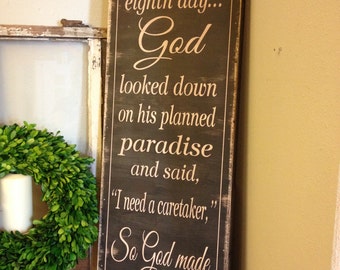 eighth day...
God
looked down
on his planned
paradise
and said,
"I need a caretaker,"
So God made